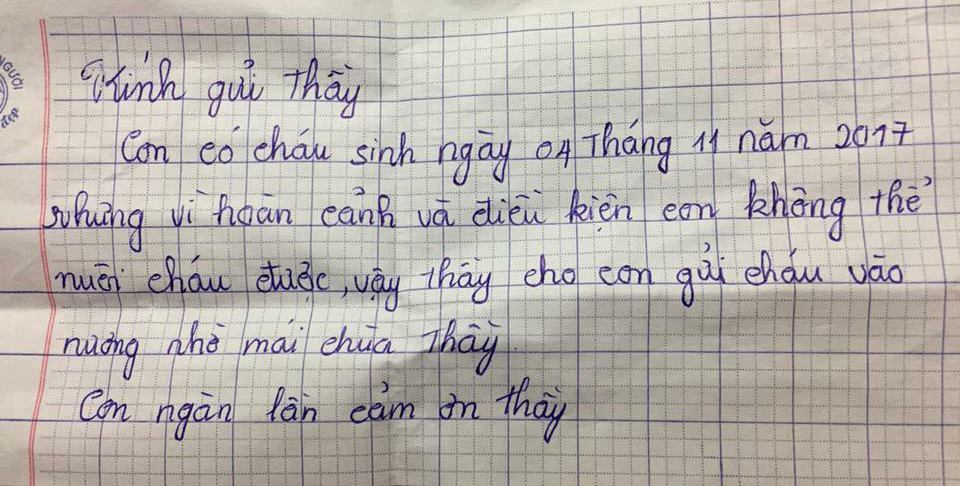 NGƯỜI
đẹp
Kính gửi Thầy
Con có cháu sinh ngày 04 Tháng 11 năm 2017
nhưng vì hoàn cảnh và điều kiện con không thể
nuôi cháu được, vậy thầy cho con gửi cháu vào
nương nhờ mái chùa Thầy.
Con ngàn lần cảm ơn thầy